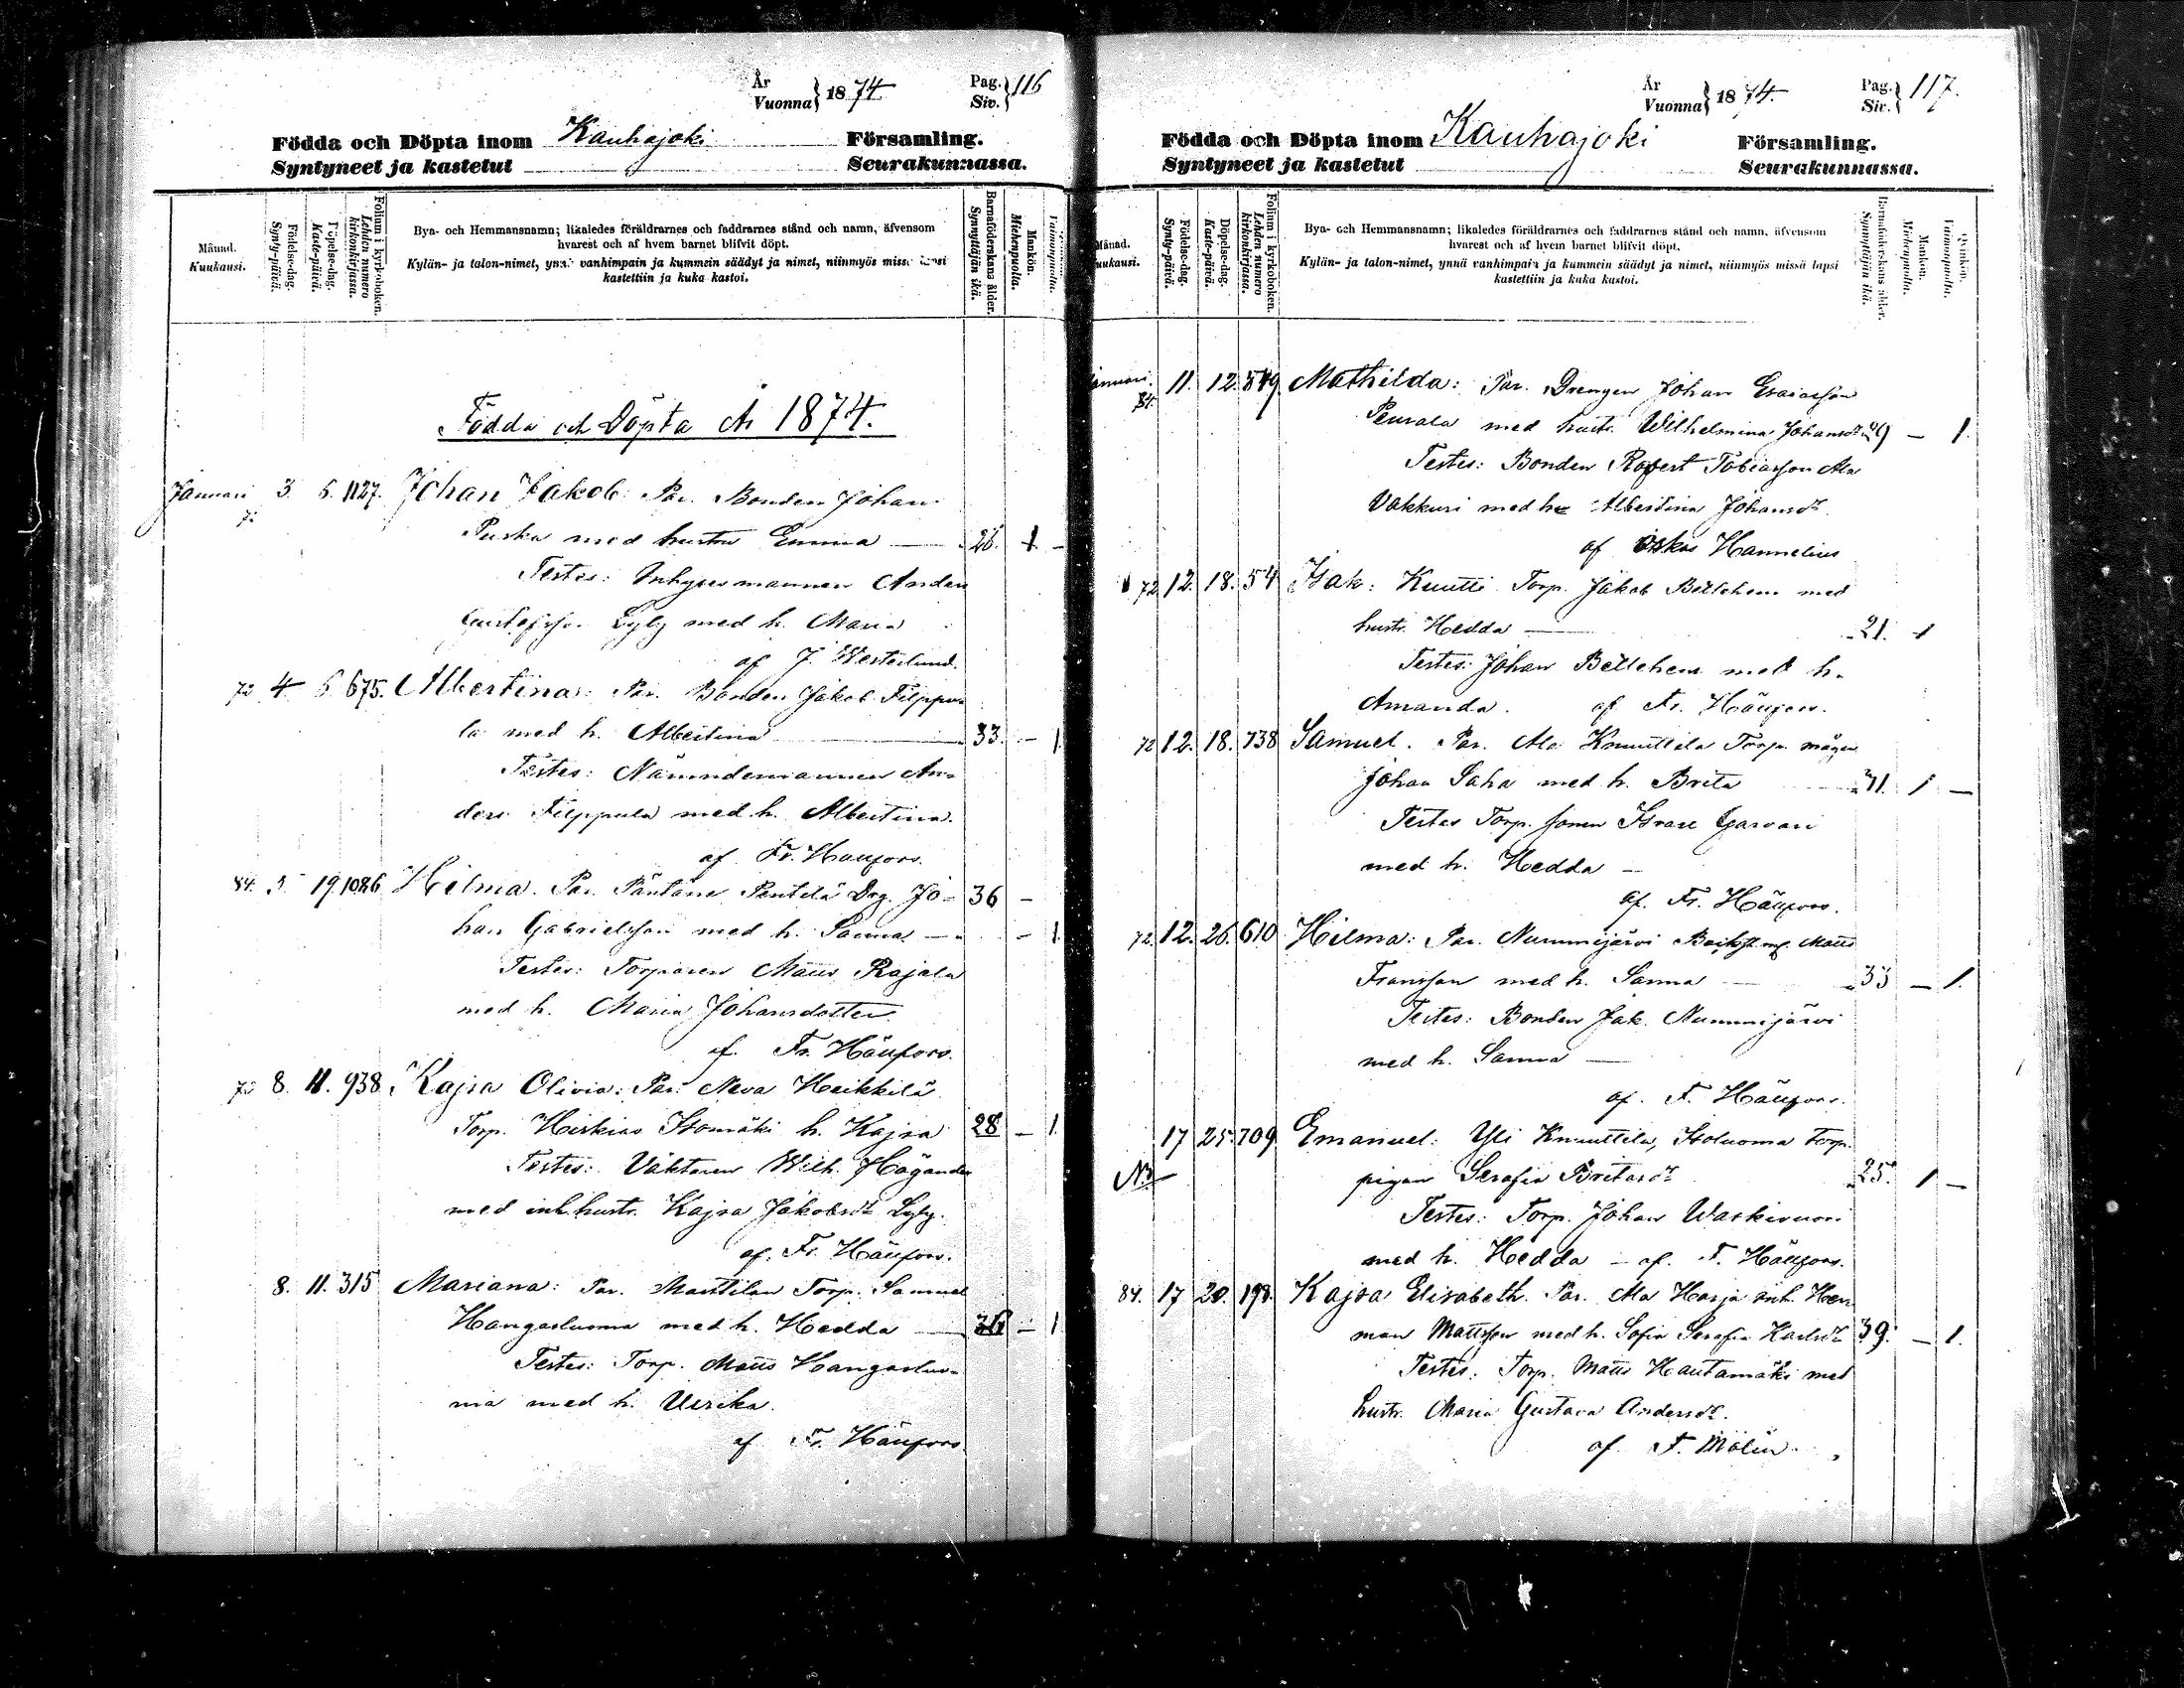 År
Vuonna} 1874 Pag. Siv.} 116
Födda och Döpta inom Kauhajoki Församling.
Syntyneet ja kastetut Seurakunnassa.
Månad. Kuukausi.
Födelse-dag. Synty-päivä.
Döpelse-dag. Kaste-päivä.
Folium i kyrkoboken. Lehden numero kirkonkirjassa.
Bya- och Hemmansnamn; likaledes föräldrarnes och faddrarnes stånd och namn, äfvensom
hvarest och af hvem barnet blifvit döpt.
Kylän- ja talon-nimet, ynnä vanhimpain ja kummein säädyt ja nimet, niinmyös missä lapsi
kastettiin ja kuka kastoi.
Barnaföderskans ålder. Synnyttäjän ikä.
Mankön. Miehenpuolta.
Vaimonpuolta.
Födda och Döpta År 1874.
Januari 3. 6. 1127. Johan Jakob: Par. Bonden Johan
Puska med hustru Emma — 26. 1. –
Testes: Inhysesmannen Anders
Gustafsson Lyly med h. Maria
af J. Westerlund.
72 4 6 675. Albertina: Par. Bonden Jakob Filppu-
la med h. Albertina — 33. – 1.
Testes: Nämndemannen An-
ders Filppula med h. Albertina.
af Fr. Häufors.
84. 5 19. 1086 Hilma. Par. Päntäne Pentilä Drg. Jo- 36 –
han Gabrielsson med h. Sanna – – 1.
Testes: Torparen Matts Rajala
med h. Maria Johansdotter.
af. Fr. Häufors.
72 8. 11. 938. Kajsa Olivia: Par. Neva Heikkilä
Torp. Hiskias Isomäki h. Kajsa 28 – 1.
Testes: Väktaren Wilh. Högander
med inh.hustr. Kajsa Jakobsdr Lyly.
af. Fr. Häufors.
8. 11. 315 Mariana: Par. Marttilan Torp. Samuel
Hangasluoma med h. Hedda — 36 – 1
Testes: Torp. Matts Hangasluo-
ma med h. Ulrika.
af Fr. Häufors.
År
Vuonna} 1874. Pag. Siv.} 117.
Födda och Döpta inom Kauhajoki Församling.
Syntyneet ja kastetut Seurakunnassa.
Månad. Kuukausi.
Födelse-dag. Synty-päivä.
Döpelse-dag. Kaste-päivä.
Folium i kyrkoboken. Lehden numero kirkonkirjassa.
Bya- och Hemmansnamn; likaledes föräldrarnes och faddrarnes stånd och namn, äfvensom
hvarest och af hvem barnet blifvit döpt.
Kylän- ja talon-nimet, ynnä vanhimpain ja kummein säädyt ja nimet, niinmyös missä lapsi
kastettiin ja kuka kastoi.
Barnaföderskans ålder. Synnyttäjän ikä.
Mankön. Miehenpuolta.
Qvinkön. Vaimonpuolta.
Januari. 11. 12. Mathilda: Par. Drengen Johan Esaiasson
Peurala med hustr. Wilhelmina Johansdr 29 – 1.
Testes: Bonden Robert Tobiasson Ala
Vakkuri med h. Albertina Johansdr.
af Oskar Hannelius
72 12. 18. 54 Isak: Knutti Torp. Jakob Betlehem med
hustr. Hedda — 21. 1
Testes: Johan Betlehem med h.
Amanda. af Fr. Häufors.
72 12. 18. 738 Samuel. Par. Ala Knuuttila Torp. mågen
Johan Saha med h. Brita 31. 1 –
Testes Torp. sonen Israel
med h. Hedda –
af. Fr. Häufors.
72. 12. 26. 610 Hilma: Par. Nummijärvi Matts
Fransson med h. Sanna – 33 – 1.
Testes: Bonden Jak. Nummijärvi
med h. Sanna —
af. F. Häufors.
17 25. 709 Emanuel: Yli Knuuttila, Isoluoma Torp.
pigan Serafia Britasdr 25. 1 –
Testes: Torp. Johan Waskivuori
med h. Hedda – af. F. Häufors.
84. 17 20. 198. Kajsa Elisabeth. Par. Ala Harja inh. Her-
man Mattsson med h. Sofia Serafia Karlsdr 39. – 1.
Testes: Torp. Matts Hautamäki med
hustr. Maria Gustava Andersdr.
af F. Molin.